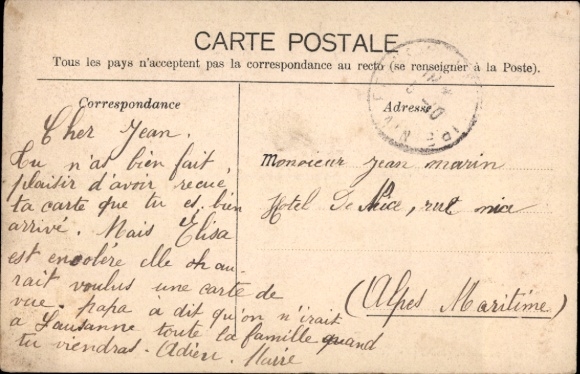 CARTE POSTALE
Tous les pays n'acceptent pas la correspondance au recto (se renseigner à la Poste).
Correspondance
Cher Jean.
Tu n'as bien fait,
plaisir d'avoir recue
ta carte que tu es bien
arrivé. Mais Elisa
est encolére elle au-
rait voulus une carte de
vue. papa à dit qu'on n'irait
a Lausanne toute la famille quand
tu viendras. Adieu.
Adresse
Monsieur Jean marin
Hotel De Nice, rue
(Alpes Maritime)